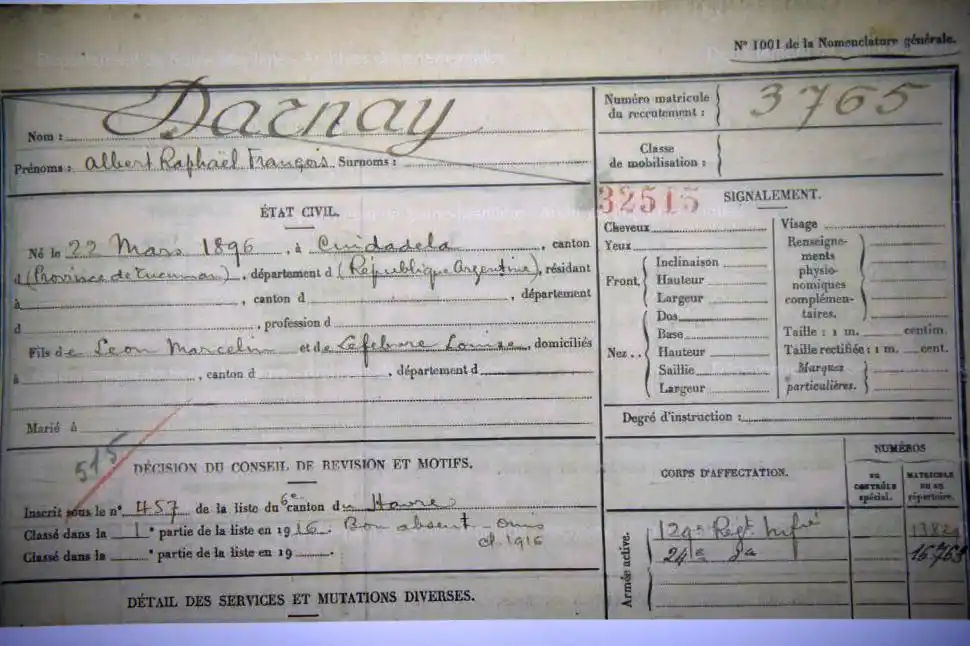 N° 1001 de la Nomenclature générale.
Nom : Darnay
Prénoms : Albert Raphaël François Surnoms :
Numéro matricule du recrutement : 3765
Classe de mobilisation :
ÉTAT CIVIL.
Né le 22 Mars 1896, à Cuidadela, canton
d (Province de Tucuman), département d (République Argentine), résidant
à , canton d , département
d , profession d
Fils de Leon Marcelin et de Lefebvre Louise, domiciliés
à , canton d , département d
Marié à
32515
SIGNALEMENT.
Cheveux
Yeux
Front.
Inclinaison
Hauteur
Largeur
Nez..
Dos
Base
Hauteur
Saillie
Largeur
Visage
Renseigne-
ments
physio-
nomiques
complémen-
taires.
Taille : 1 m. centim.
Taille rectifiée : 1 m. cent.
Marques
particulières.
Degré d'instruction :
515
DÉCISION DU CONSEIL DE REVISION ET MOTIFS.
Inscrit sous le n° 457 de la liste du 6e canton du Havre
Classé dans la 1e partie de la liste en 1916. Bon absent omis
cl. 1916
Classé dans la e partie de la liste en 19 .
DÉTAIL DES SERVICES ET MUTATIONS DIVERSES.
CORPS D'AFFECTATION.
NUMÉROS
AU CONTRÔLE spécial.
MATRICULE OU AU répertoire.
Armée active.
129e Regt Infie
24e da 16763